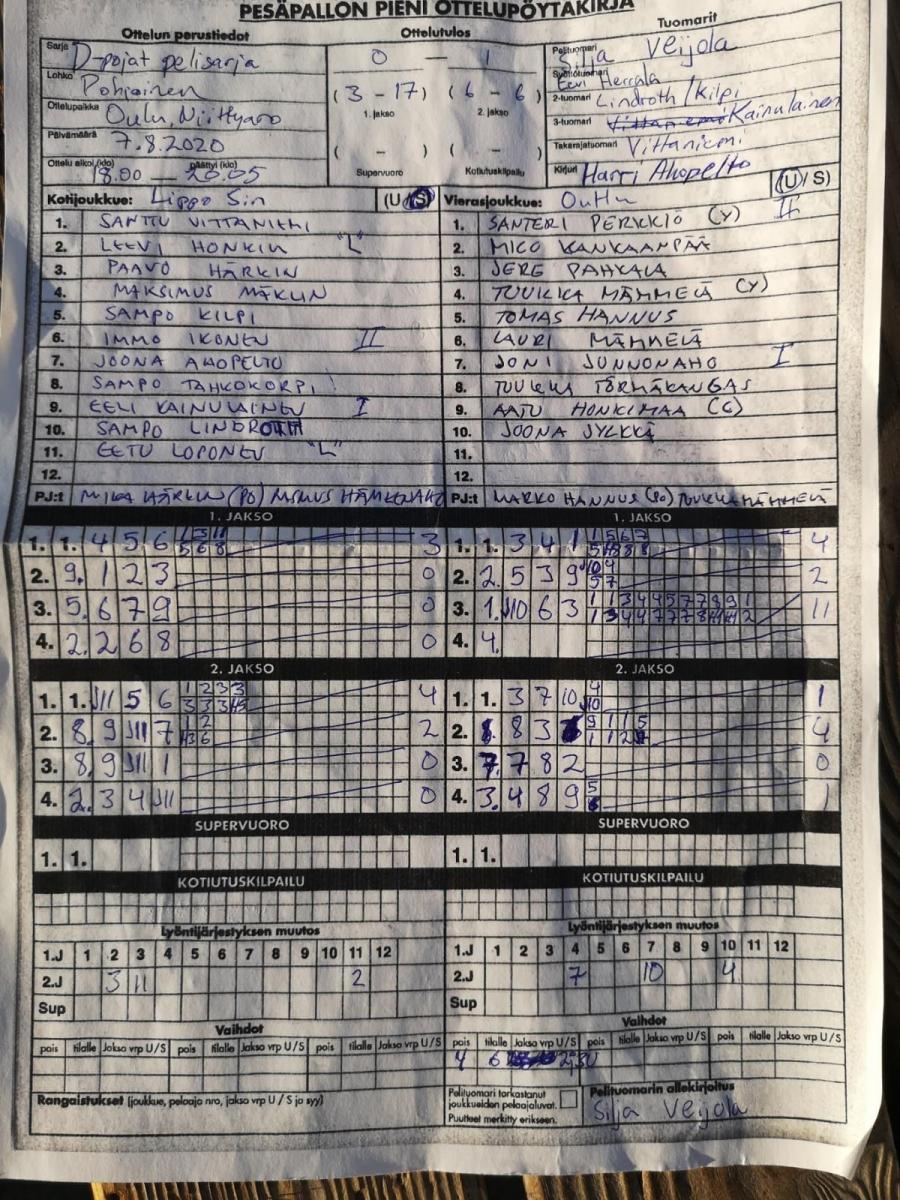 PESÄPALLON PIENI OTTELUPÖYTÄKIRJA
Ottelun perustiedot
Sarja D-pojat pelisarja
Lohko Pohjoinen
Ottelupaikka Oulu, Niittyaro
Päivämäärä 7.8.2020
Ottelu alkoi (klo) 18.00 — päättyi (klo) 20.05
Ottelutulos
0 — 1
(3 - 17) (6 - 6)
1. jakso 2. jakso
( - ) ( - )
Supervuoro Kotiutuskilpailu
Tuomarit
Pelituomari Silja Veijola
Syöttötuomari Eevi Herrala
2-tuomari Lindroth / Kilpi
3-tuomari Kainulainen
Takarajatuomari Vittaniemi
Kirjuri Harri Ahopelto
Kotijoukkue: Lippo Sin (U/S)
1. SANTTU VITTANIEMI
2. LEEVI HONKIN "L"
3. PAAVO HÄRKIN
4. MAKSIMUS MÄKLIN
5. SAMPO KILPI
6. IMMO IKONEN II
7. JOONA AHOPELTO
8. SAMPO TAHKOKORPI
9. EELI KAINULAINEN I
10. SAMPO LINDROTH
11. EETU LOPONEN "L"
12.
PJ:t MIKA HÄRKIN (PO)
Vierasjoukkue: OuHu (U/S)
1. SANTERI PERKKIÖ (Y) II
2. MICO KANKAANPÄÄ
3. JERE PAHKALA
4. TUUKKA MÄMMELÄ (Y)
5. TOMAS HANNUS
6. LAURI MÄMMELÄ
7. JONI JUNNONAHO I
8. TUUKKA TÖRMÄKANGAS
9. AATU HONKIMAA (C)
10. JOONA JYLKKÄ
11.
12.
PJ:t MARKO HANNUS (PO) TUUKKA MÄMMELÄ
1. JAKSO
1. 1. 4 5 6 3
2. 9. 1 2 3 0
3. 5. 6 7 9 0
4. 2. 2 6 8 0
1. JAKSO
1. 1. 3 4 1 4
2. 2. 5 3 9 2
3. 1. J10 6 3 11
4. 4.
2. JAKSO
1. 1. J11 5 6 4
2. 8. 9 J11 7 2
3. 8. 9 J11 1 0
4. 2. 3 4 J11 0
2. JAKSO
1. 1. 3 7 10 1
2. 8 3 4
3. 7. 7 8 2 0
4. 3. 4 8 9 1
SUPERVUORO
1. 1.
SUPERVUORO
1. 1.
KOTIUTUSKILPAILU
KOTIUTUSKILPAILU
Lyöntijärjestyksen muutos
1.J 1 2 3 4 5 6 7 8 9 10 11 12
2.J 3 11 2
Sup
Lyöntijärjestyksen muutos
1.J 1 2 3 4 5 6 7 8 9 10 11 12
2.J 7 10 4
Sup
Vaihdot
pois tilalle Jakso vrp U/S pois tilalle Jakso vrp U/S pois tilalle Jakso vrp U/S
Vaihdot
pois tilalle Jakso vrp U/S pois tilalle Jakso vrp U/S pois tilalle Jakso vrp U/S
4 6
Rangaistukset (joukkue, pelaaja nro, jakso vrp U / S ja syy)
Pelituomari tarkastanut
joukkueiden pelaajaluvat.
Puutteet merkitty erikseen.
Pelituomarin allekirjoitus
Silja Veijola